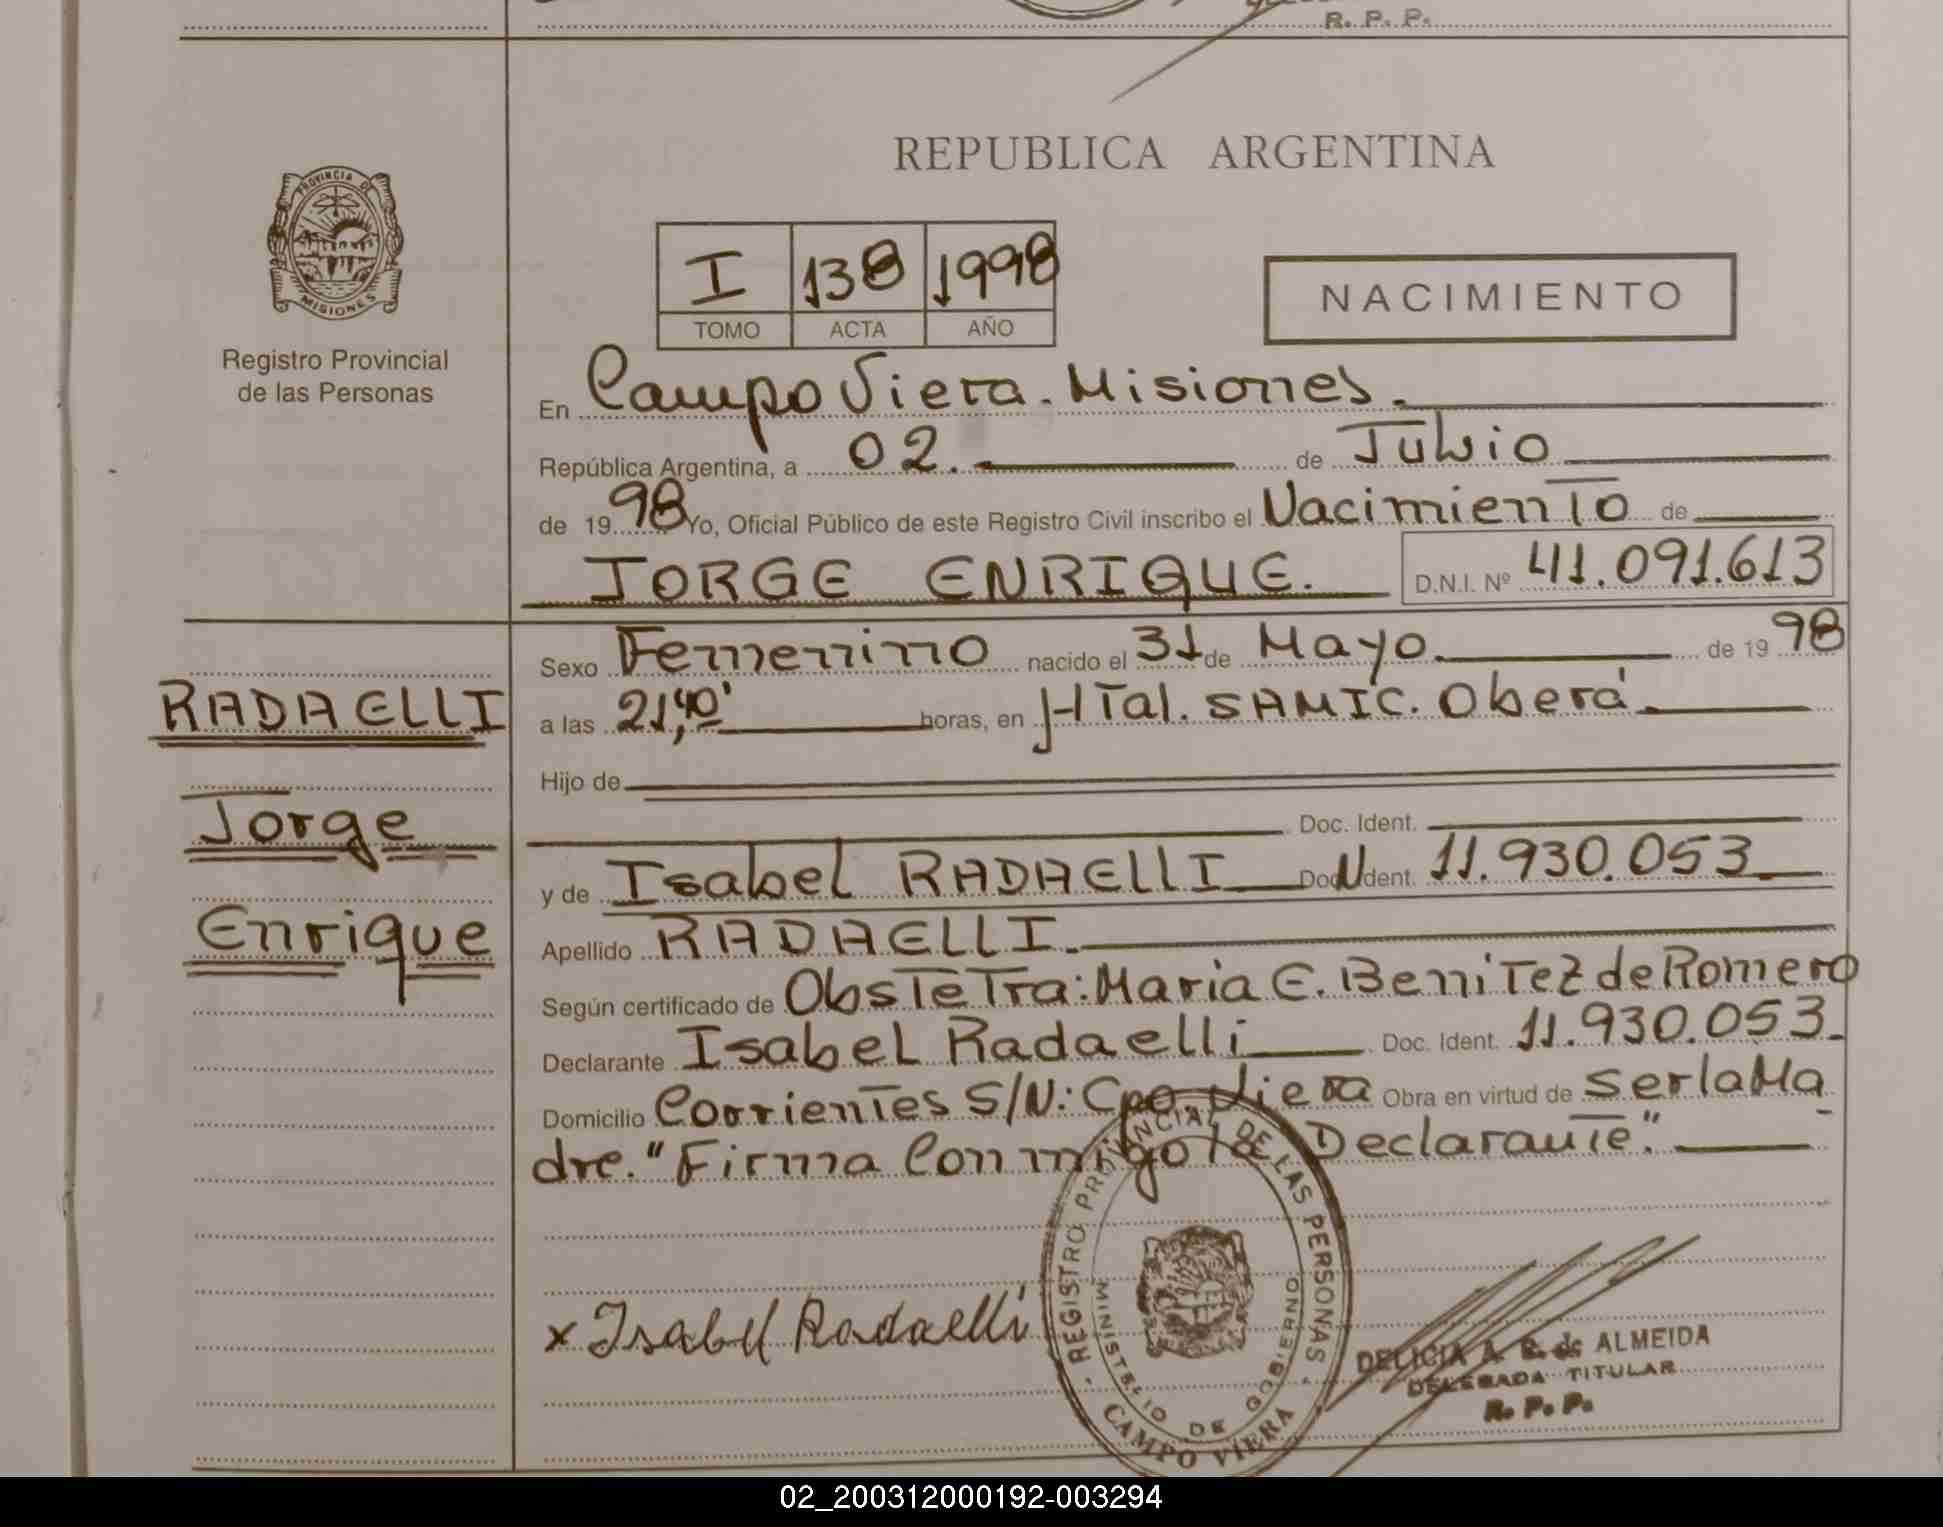 R. P. P.
REPUBLICA ARGENTINA
PROVINCIA DE MISIONES
Registro Provincial
de las Personas
I 138 1998
TOMO ACTA AÑO
NACIMIENTO
En Campo Viera. Misiones.
República Argentina, a 02. de Julio
de 1998 Yo, Oficial Público de este Registro Civil inscribo el Nacimiento de
JORGE ENRIQUE. D.N.I. Nº 41.091.613
Sexo Femenino nacido el 31 de Mayo de 1998
RADAELLI
a las 21,40' horas, en HTal. SAMIC. Oberá
Hijo de
Jorge
Doc. Ident.
y de Isabel RADAELLI Doc. Ident. 11.930.053
Enrique
Apellido RADAELLI.
Según certificado de ObsTeTra: Maria E. BeniTez de Romero
Declarante Isabel Radaelli Doc. Ident. 11.930.053.
Domicilio Corrientes S/N: Cpo. Viera Obra en virtud de ser la Ma
dre. "Firma Conmigo la Declarante".
REGISTRO PROVINCIAL DE LAS PERSONAS
MINISTERIO DE GOBIERNO
CAMPO VIERA
x Isabel Radaelli
DELICIA A. B. de ALMEIDA
DELEGADA TITULAR
R. P. P.
02_200312000192-003294